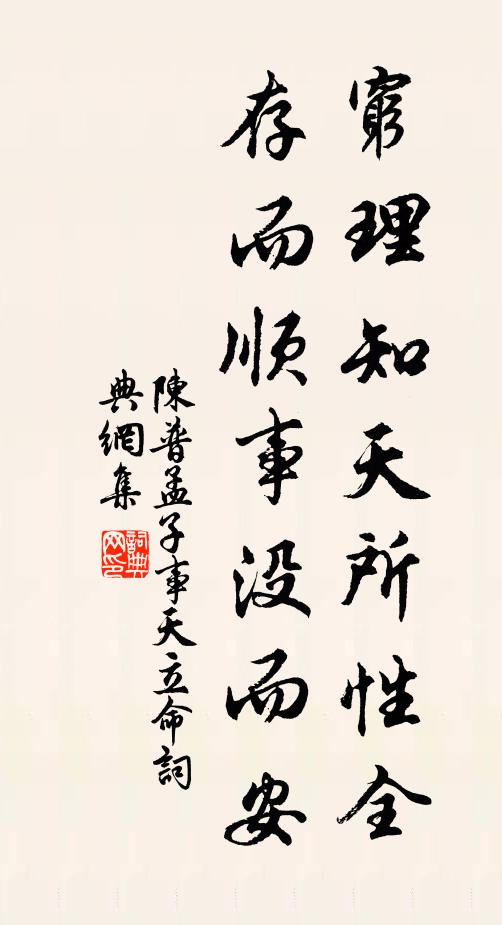 窮理知天所性全
存而順事没而安
陳普孟子事天立命詞
典網集
詞典网印